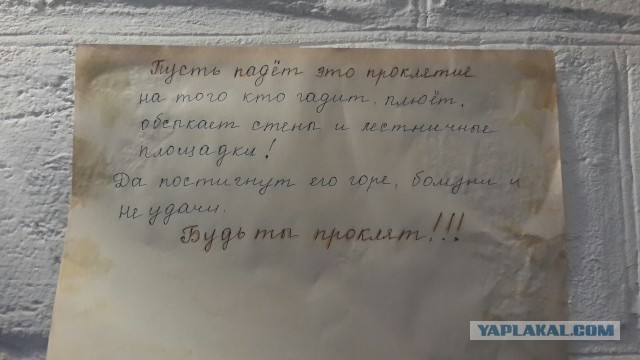 Пусть падёт это проклятие
на того кто гадит, плюёт,
обсыкает стены и лестничные
площадки!
Да постигнут его горе, болезни и
не удачи.
Будь ты проклят!!!
YAPLAKAL.COM